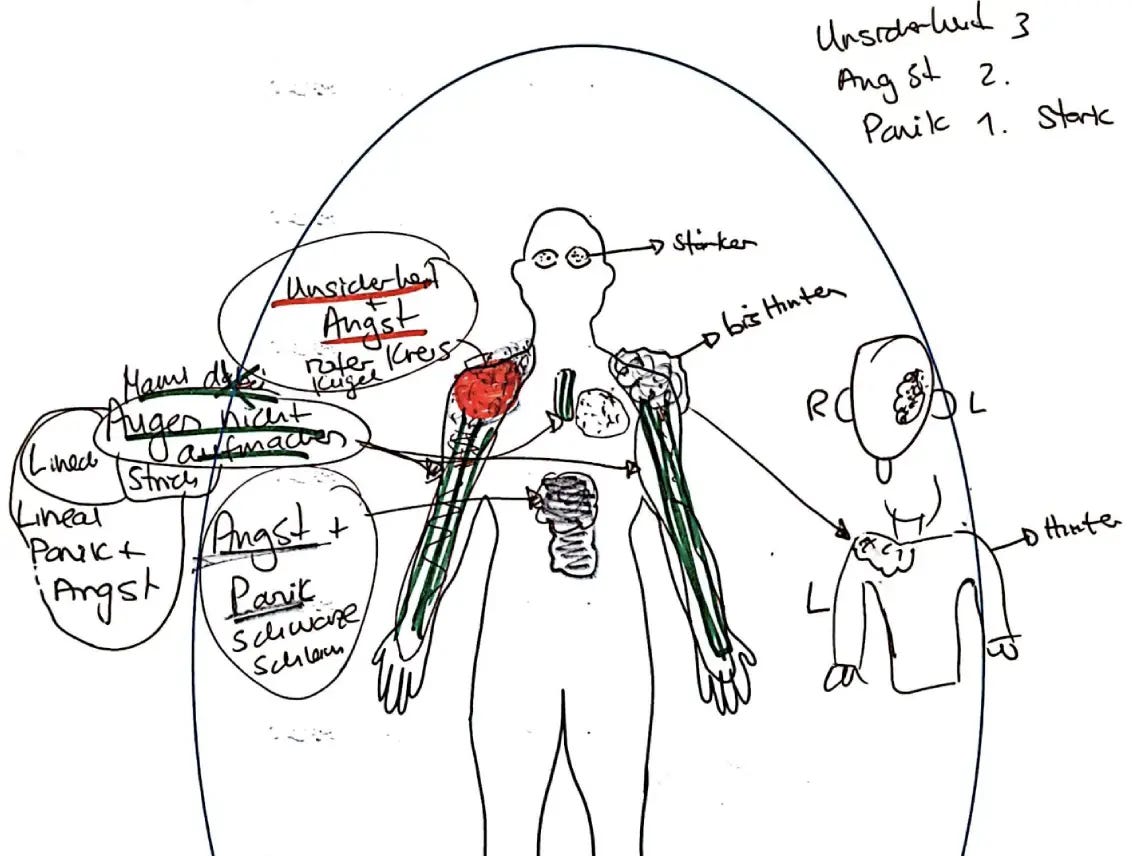 Unsicherheit 3
Angst 2.
Panik 1. Stark
Stärker
bis Hinten
Unsicherheit
+
Angst
roter Kreis
Kugel
Mama
Augen nicht
aufmachen
Lineal
Strich
Lineal
Panik +
Angst
Angst +
Panik
Schwarze
Schleim
R
L
Hinten
L